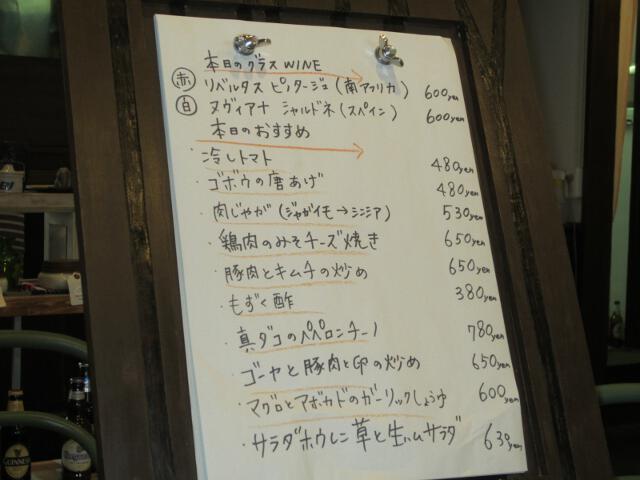 本日のグラスWINE
赤 リベルタス ピノタージュ(南アフリカ) 600yen
白 ヌヴィアナ シャルドネ(スペイン) 600yen
本日のおすすめ
・冷しトマト 480yen
・ゴボウの唐あげ 480yen
・肉じゃが(ジャガイモ→シンシア) 530yen
・鶏肉のみそチーズ焼き 650yen
・豚肉とキムチの炒め 650yen
・もずく酢 380yen
・真ダコのペペロンチーノ 780yen
・ゴーヤと豚肉と卵の炒め 650yen
・マグロとアボカドのガーリックしょうゆ 600yen
・サラダホウレン草と生ハムサラダ 630yen
GUINNESS